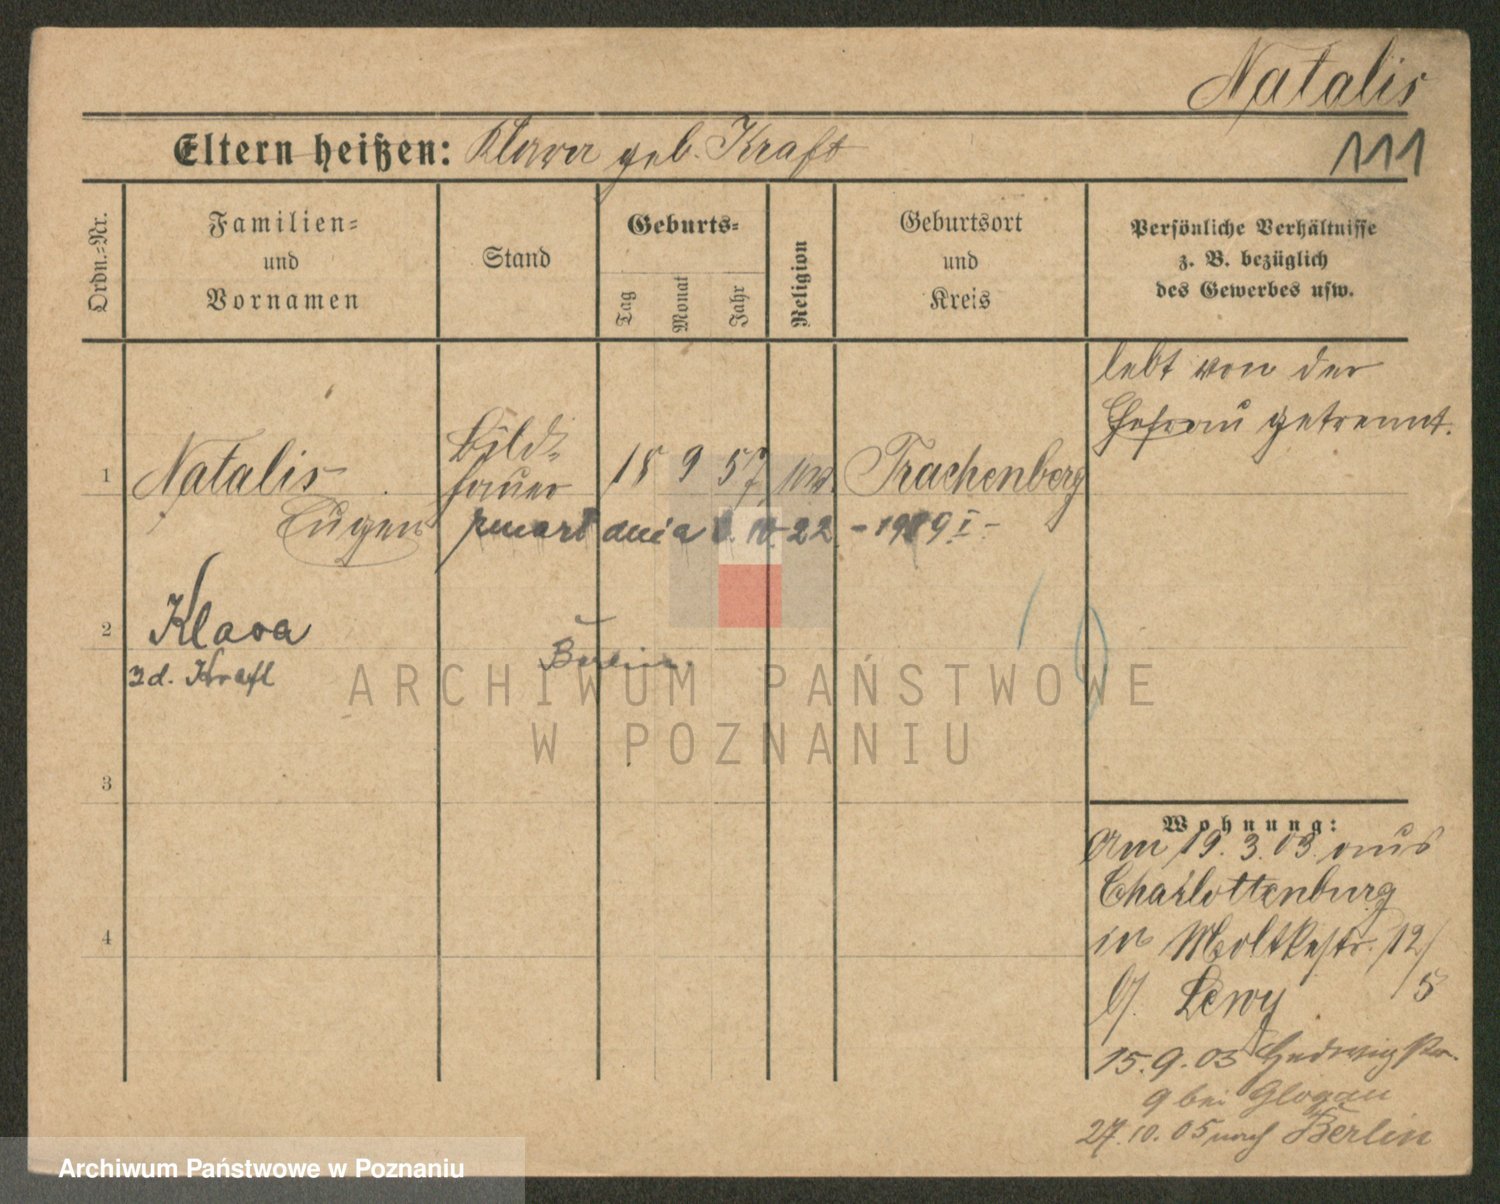 Natalis
111
Eltern heißen: Klara geb. Kraft
Ordn.-Nr.
Familien-
und
Vornamen
Stand
Geburts-
Tag
Monat
Jahr
Religion
Geburtsort
und
Kreis
Persönliche Verhältnisse
z. B. bezüglich
des Gewerbes usw.
lebt von der
Ehefrau getrennt.
1
Natalis
Eugen
Bild-
hauer
18 9 57
Trachenberg
zmarł dnia
22 - 1919
2
Klara
zd. Kraft
Berlin
3
4
Wohnung:
Am 19.3.03 aus
Charlottenburg
in Moltkestr. 12/
b/. Lewy 5
15.9.03 Hedwigstr.
9 bei Glogau
27.10.05 nach Berlin
ARCHIWUM PAŃSTWOWE
W POZNANIU
Archiwum Państwowe w Poznaniu